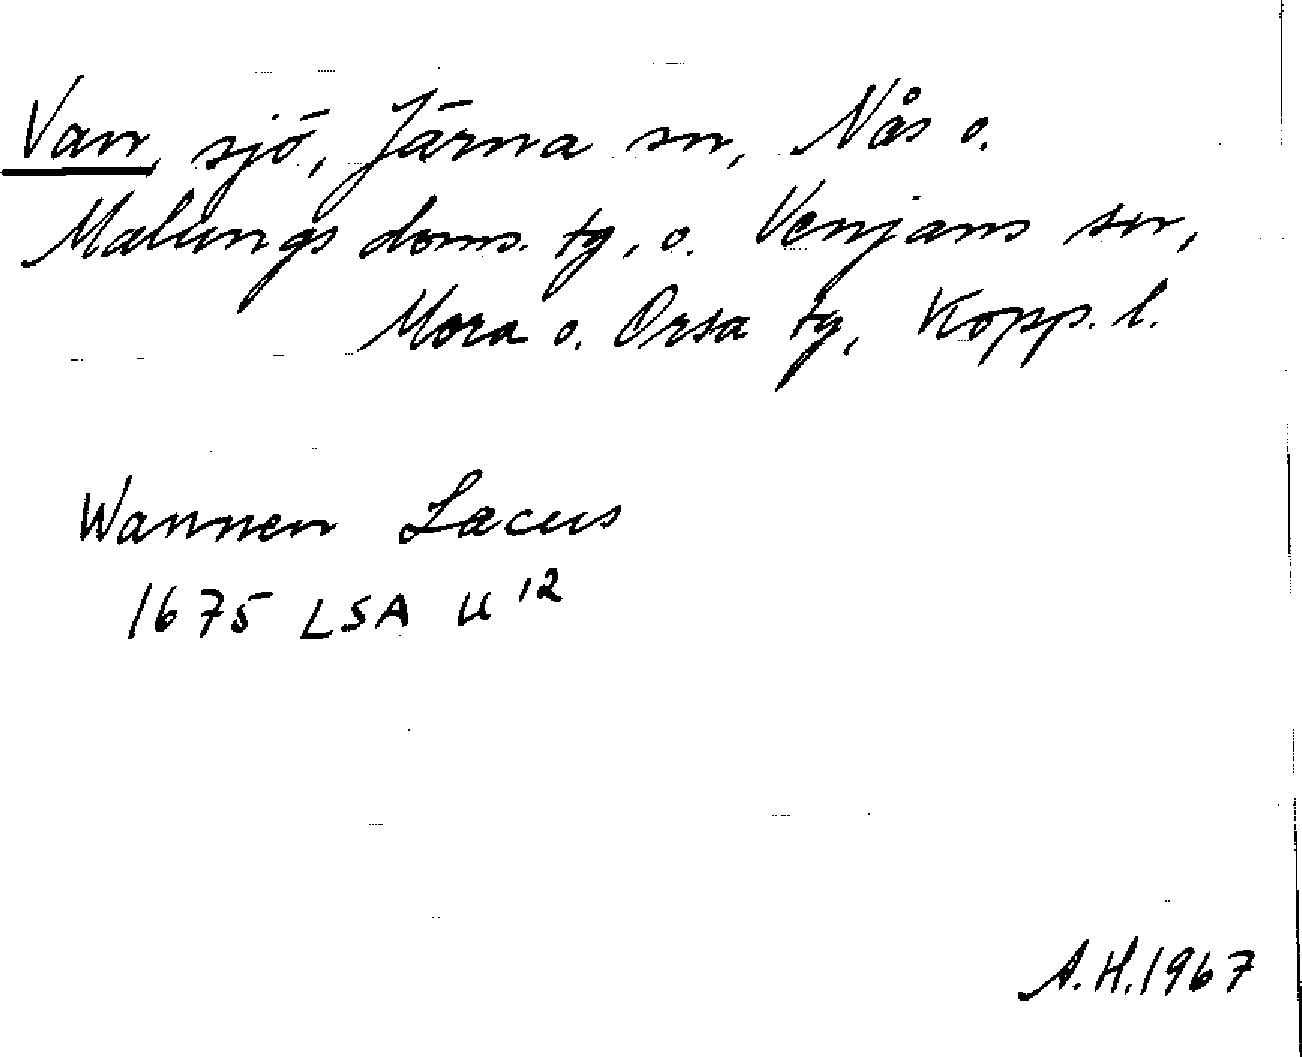 Van, sjö, Järna sn, Nås o.
Malungs doms. tg, o. Venjans sn,
Mora o. Orsa tg, Kopp. l.
Wannen Lacus
1675 LSA U 12
A.H. 1967